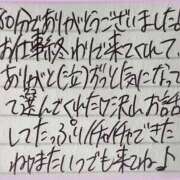 80分でありがとうございました!
お仕事終わりで来てくれて、
ありがと(泣)ずっと気になって
て選んでくれたけど沢山お話
してたっぷりイチャイチャできた
わねまたいつでも来てね♪